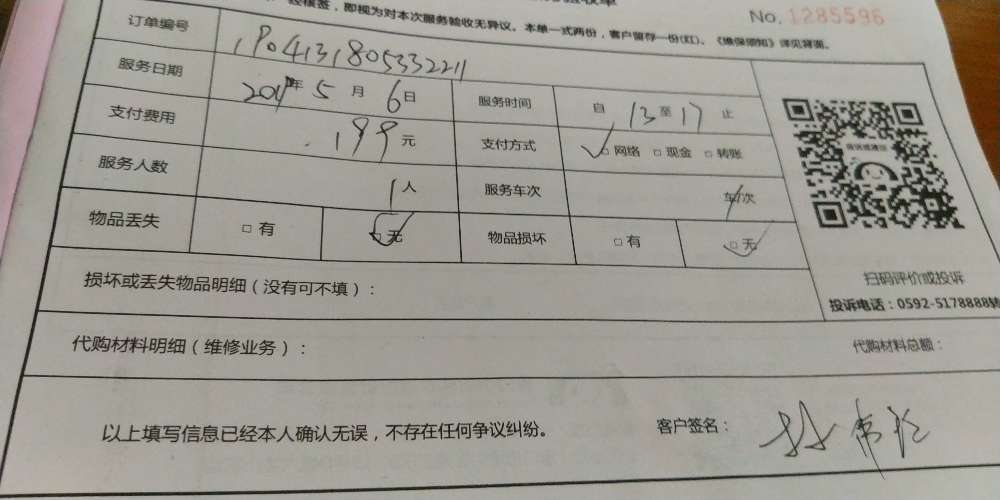 经核签，即视为对本次服务验收无异议。本单一式两份，客户留存一份(红)。《维保须知》详见背面。
No. 1285596
订单编号
服务日期 年 5 月 6 日 服务时间 自 13 至 17 止
支付费用 199 元 支付方式 □ 网络 □ 现金 □ 转账
服务人数 1 人 服务车次 车/次
物品丢失 □ 有 □ 无 物品损坏 □ 有 □ 无
扫码评价或投诉
投诉电话：0592-5178888转
损坏或丢失物品明细（没有可不填）：
代购材料明细（维修业务）： 代购材料总额：
以上填写信息已经本人确认无误，不存在任何争议纠纷。 客户签名：